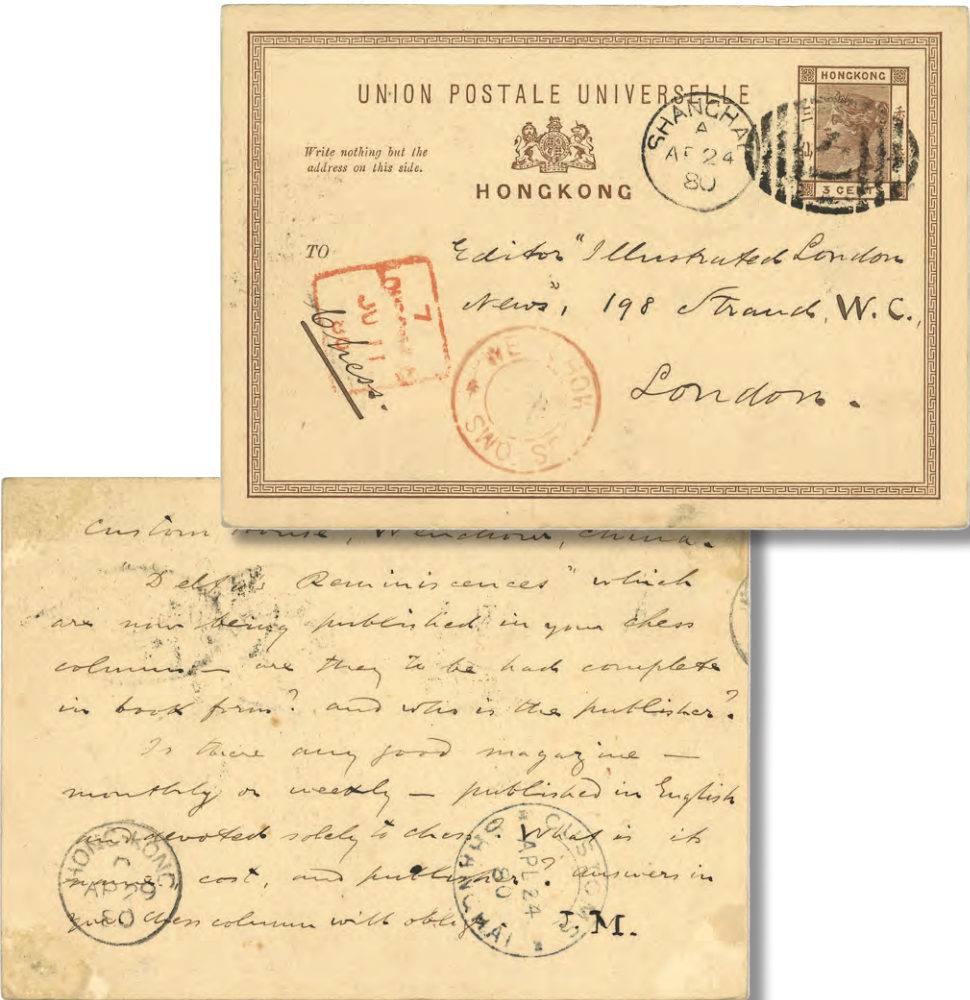 UNION POSTALE UNIVERSELLE
HONGKONG
三
3 CENT
Write nothing but the
address on this side.
HONGKONG
SHANGHAI
A
AP 24
80
TO
Editor "Illustrated London
News", 198 Strand, W.C.,
London.
Chess.
7
JU 11
WE CHOW
S OMS
Custom House, Wenchow, China.
"Delta Reminiscences" which
are now being published in your chess
column — are they to be had complete
in book form? and who is the publisher?
Is there any good magazine —
monthly or weekly — published in English
and devoted solely to chess. What is its
name, cost, and publisher? Answers in
your chess column will oblige J.M.
HONG KONG
C
AP 29
80
CUSTOMS
APL 24
80
SHANGHAI